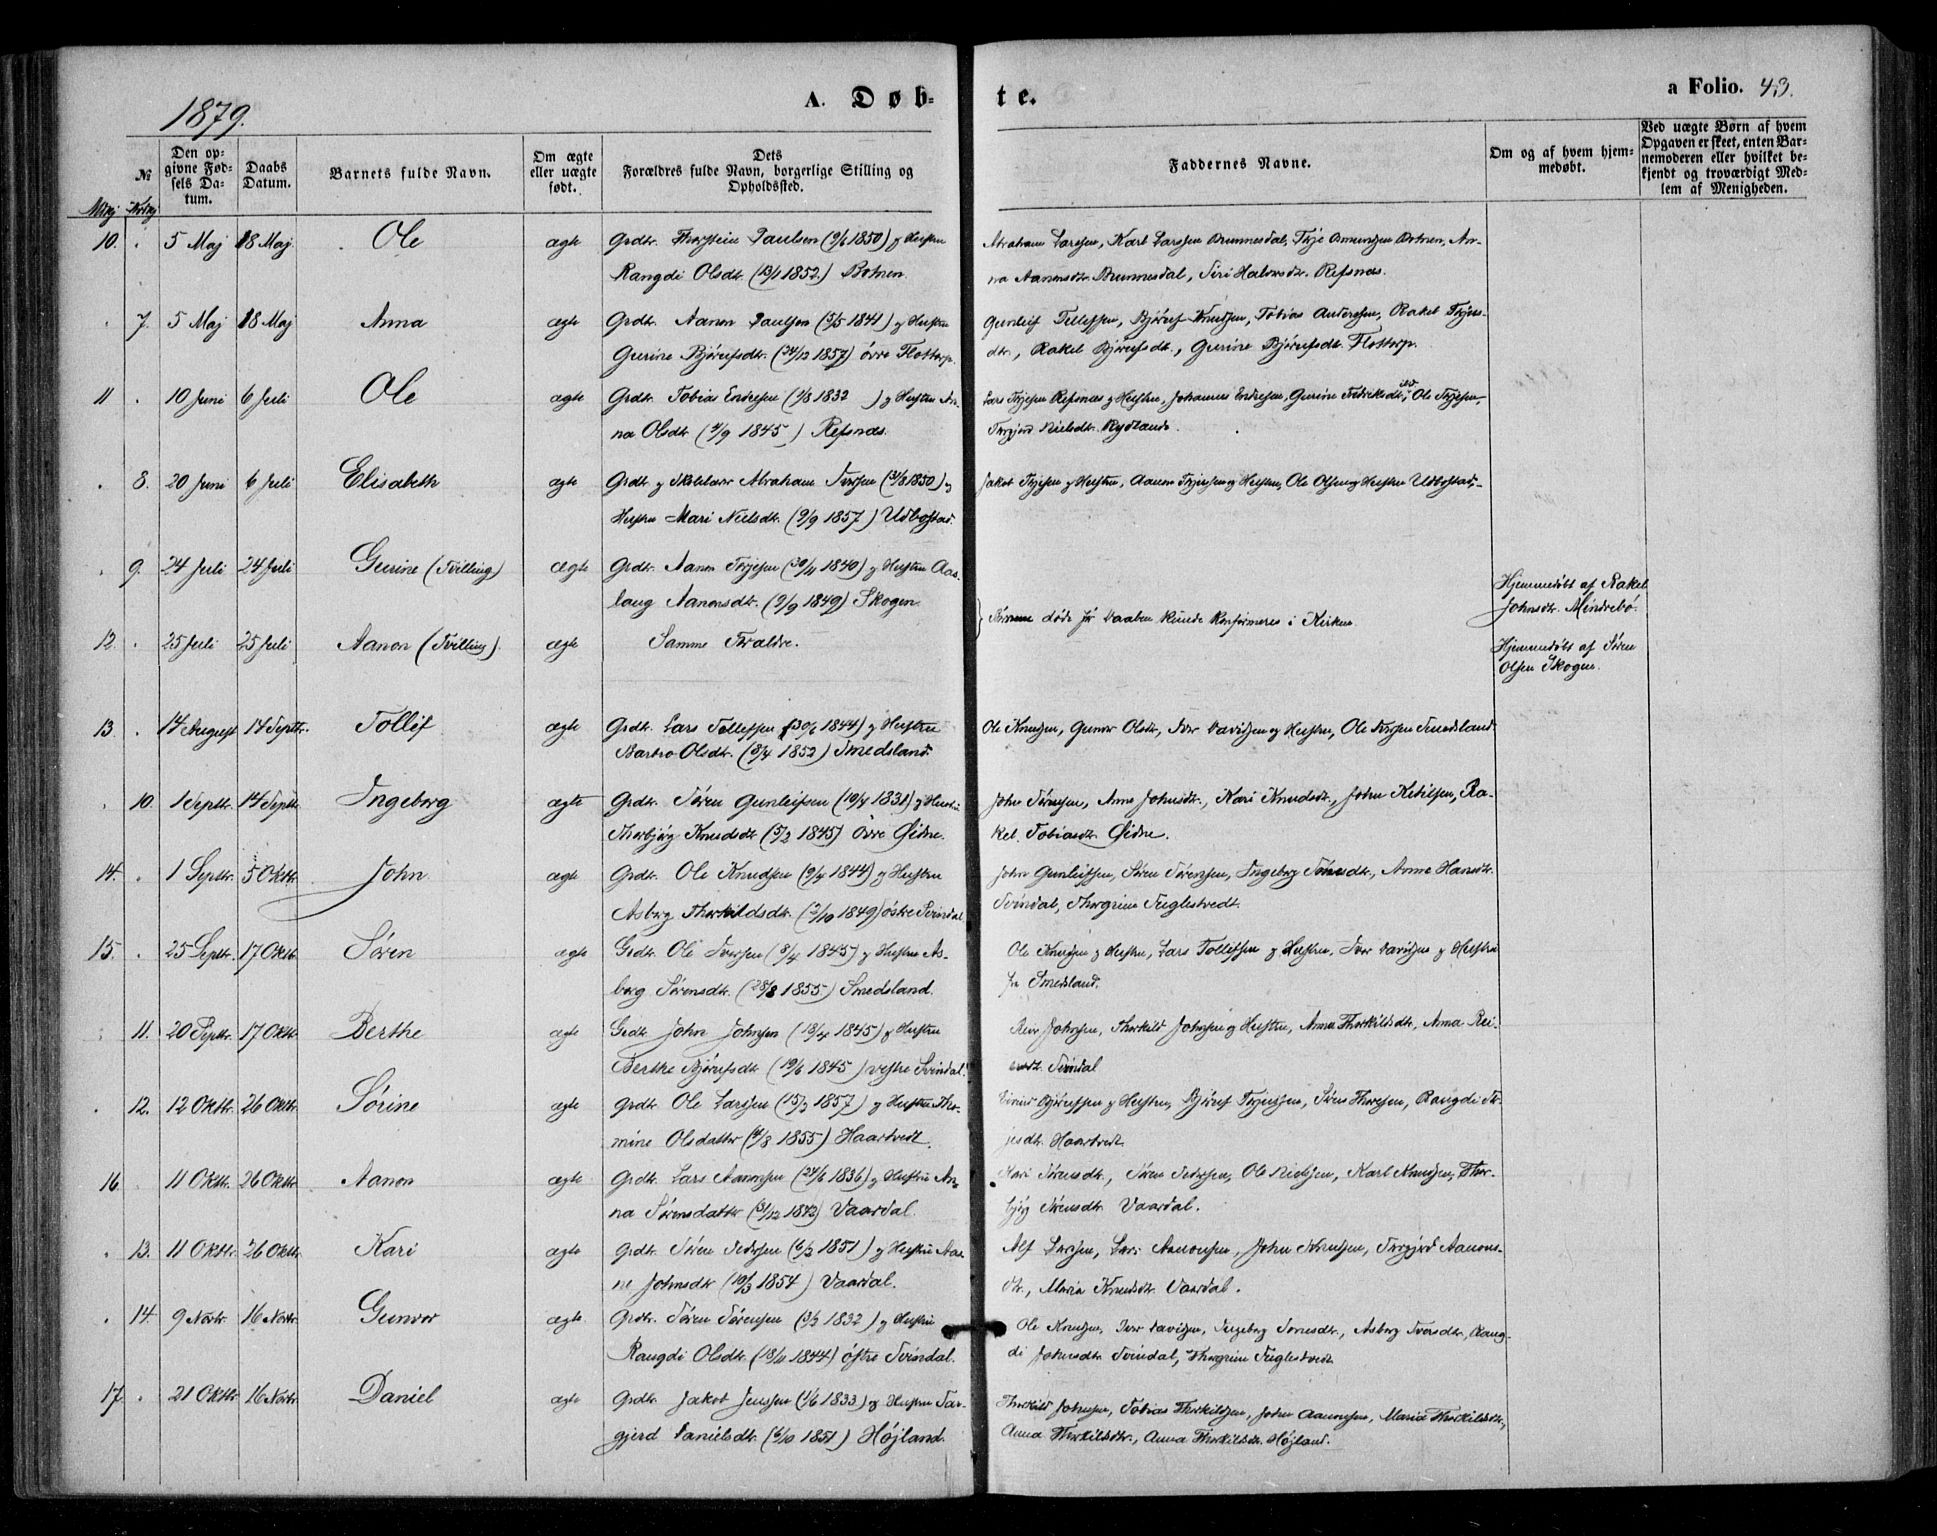 1879.
A. Døb-
te.
a Folio. 43.
Mkj. Kvkj.
№
Den op-
givne Fød-
sels Da-
tum.
Daabs
Datum.
Barnets fulde Navn.
Om ægte
eller uægte
født.
Dets
Forældres fulde Navn, borgerlige Stilling og
Opholdssted.
Faddernes Navne.
Om og af hvem hjem-
medøbt.
Ved uægte Børn af hvem
Opgaven er skeet, enten Bar-
nemoderen eller hvilket be-
kjendt og troværdigt Med-
lem af Menigheden.
10. 5 Maj 18 Maj Ole ægte Grdbr. Thorstein Paulsen (9/6 1850) og Hustru
Rangdi Olsdtr. (13/1 1852) Botnen.
Abraham Larssen, Karl Larssen Brunnesdal, Terje Omundsen Botnen, An-
na Aanonsdtr. Brunnesdal, Siri Halvorsdtr. Refsnæs.
7. 5 Maj 18 Maj Anna ægte Grdbr. Aanon Paulsen (5/5 1841) og Hustru
Gurine Bjørufsdtr. (24/12 1857) øvre Flottorp.
Gunleif Tellefsen, Bjøruf Knudsen, Tobias Anderssen, Rakel Terjes-
dtr., Rakel Bjørufsdtr., Gurine Bjørufsdtr. Flottorp.
11. 10 Juni 6 Juli Ole ægte Grdbr. Tobias Endresen (1/8 1832 ) og Hustru An-
na Olsdtr. (4/9 1845 ) Refsnæs.
Lars Terjesen Refsnæs og Hustru, Johannes Endresen, Gurine Fredriksdtr., Ole Terjesen,
Torgjerd Nielsdtr. Rydland.
8. 20 Juni 6 Juli Elisabeth ægte Grdbr. og Skolelærer Abraham Iversen (31/8 1850) og
Hustru Mari Nielsdtr. (9/9 1857) Udbostad.
Jakob Terjesen og Hustru, Aanon Terjesen og Hustru, Ole Olsen og Hustru Udbostad.
9. 24 Juli 24 Juli Gurine (Tvilling) ægte Grdbr. Aanon Terjesen (30/11 1840) og Hustru Aas-
laug Aanonsdtr. (9/9 1849) Skogen.
Børnene døde før Daaben kunde konfirmeres i Kirken.
Hjemmedøbt af Rakel
Johnsdtr. Mindrebø.
12. 25 Juli 25 Juli Aanon (Tvilling). ægte Samme Forældre.
Hjemmedøbt af Søren
Olsen Skogen.
13. 14 August 14 Septbr. Tollif ægte Grdbr. Lars Tollefsen (30/6 1844) og Hustru
Barbro Olsdtr. (8/4 1852) Smedsland.
Ole Knudsen, Gunvor Olsdtr., Iver Davidsen og Hustru, Ole Iversen Smedsland.
10. 1 Septbr. 14 Septbr. Ingeborg ægte Grdbr. Søren Gunleifsen (10/4 1831) og Hustru
Thorbjørg Knudsdtr. (5/2 1845) øvre Øidne.
John Sørensen, Anne Johnsdtr., Kari Knudsdtr., John Ketilsen, Ra-
kel Tobiasdtr. Øidne.
14. 1 Septbr. 5 Oktbr. John ægte Grdbr. Ole Knudsen (9/4 1844) og Hustru
Asborg Thorkildsdtr. (2/10 1849) østre Svindal
John Gunleifsen, Søren Sørensen, Ingeborg Tønnesdtr., Anne Hansdtr.
Svindal, Thorgrim Fuglestvedt.
15. 25 Septbr. 17 Oktbr. Søren ægte Grdbr. Ole Iversen (8/4 1845) og Hustru As-
borg Sørensdtr. (28/8 1855) Smedsland.
Ole Knudsen og Hustru, Lars Tollefsen og Hustru, Iver Davidsen og Hustru
fra Smedsland.
11. 20 Septbr. 17 Oktbr. Berthe ægte Grdbr. John Johnsen (18/4 1845) og Hustru
Berthe Bjørufsdtr. (19/6 1845 ) vestre Svindal.
Reier Johnsen, Thorkild Johnsen og Hustru, Anna Thorkildsdtr., Anna Rei-
ersdtr. Svindal
12. 12 Oktbr. 26 Oktbr. Sørine ægte Grdbr. Ole Larssen (15/3 1857) og Hustru Tho-
mine Olsdatter (4/8 1855) Haartvedt.
Bjørufsen og Hustru, Bjøruf Terjessen, Søren Thoresen, Rangdi Ter-
jesdtr. Haartvedt.
16. 11 Oktbr. 26 Oktbr. Aanon ægte Grdbr. Lars Aanonsen (24/6 1836) og Hustru An-
na Sørensdatter (31/12 1842) Vaardal.
Mari Sørensdtr., Søren Pedersen, Ole Nielsen, Karl Knudsen, Thor-
bjørg Sørensdtr. Vaardal.
13. 11 Oktbr. 26 Oktbr. Kari ægte Grdbr. Søren Pedersen (6/3 1851) og Hustru Aa-
ne Johnsdtr. (10/3 1854) Vaardal.
Alf Larssen, Lars Aanonsen, John Knudsen, Torgjerd Aanons-
dtr., Maria Knudsdtr. Vaardal.
14. 9 Novbr. 16 Novbr. Gunvor ægte Grdbr. Søren Sørensen (3/3 1832 ) og Hustru
Rangdi Olsdtr. (18/11 1844) østre Svindal.
Ole Knudsen, Iver Davidsen, Ingeborg Tønnesdtr., Asborg Iversdtr., Rang-
di Johnsdtr. Svindal, Thorgrim Fuglestvedt.
17. 21 Oktbr. 16 Novbr. Daniel ægte Grdbr. Jakob Jenssen (1/6 1833) og Hustru Tor-
gjerd Danielsdtr. (6/10 1851) Højland.
Thorkild Johnsen, Tobias Thorkildsen, John Aanonsen, Maria Thorkildsdtr.,
Anna Thorkildsdtr., Anna Thorkildsdtr. Højland.